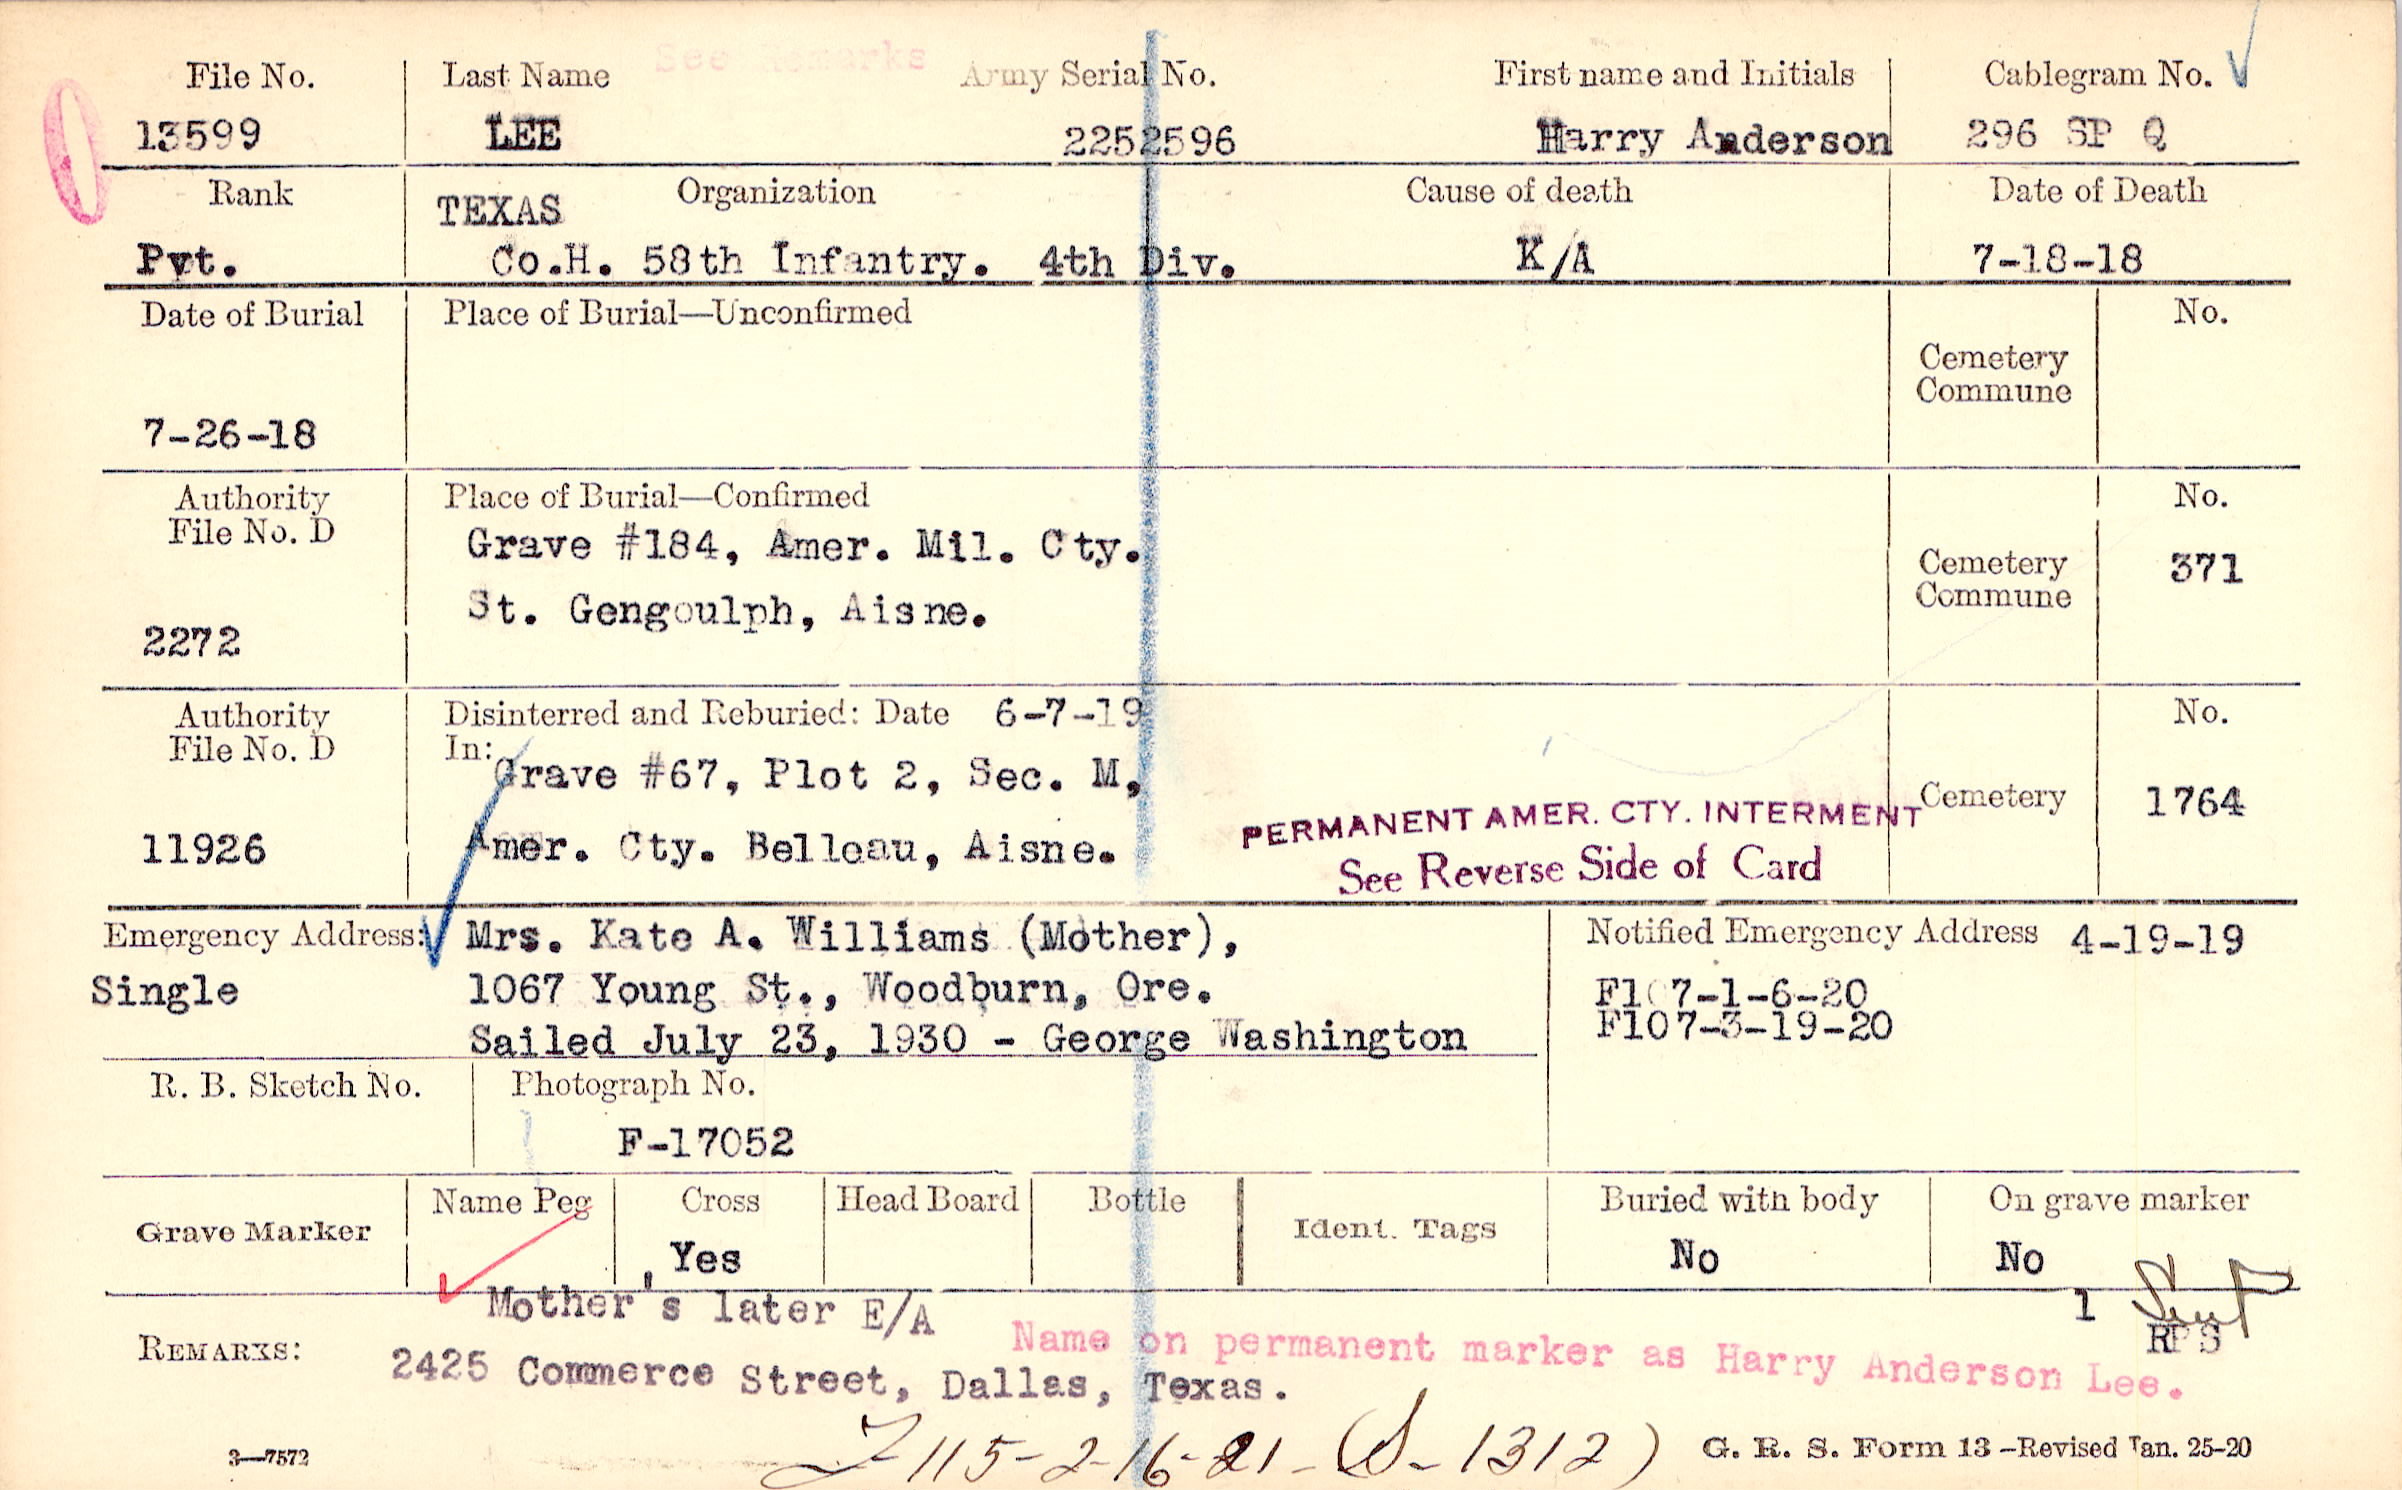 See Remarks
File No. Last Name Army Serial No. First name and Initials Cablegram No.
13599 LEE 2252596 Harry Anderson 296 SP Q
Rank Organization Cause of death Date of Death
TEXAS
Pvt. Co.H. 58th Infantry. 4th Div. K/A 7-18-18
Date of Burial Place of Burial—Unconfirmed No.
Cemetery
Commune
7-26-18
Authority Place of Burial—Confirmed No.
File No. D
Grave #184, Amer. Mil. Cty.
Cemetery 371
Commune
St. Gengoulph, Aisne.
2272
Authority Disinterred and Reburied: Date 6-7-19 No.
File No. D In:
Grave #67, Plot 2, Sec. M,
Cemetery 1764
PERMANENT AMER. CTY. INTERMENT
11926 Amer. Cty. Belleau, Aisne.
See Reverse Side of Card
Emergency Address: Mrs. Kate A. Williams (Mother), Notified Emergency Address 4-19-19
Single 1067 Young St., Woodburn, Ore. F107-1-6-20
F107-3-19-20
Sailed July 23, 1930 - George Washington
R. B. Sketch No. Photograph No.
F-17052
Grave Marker Name Peg Cross Head Board Bottle Ident. Tags Buried with body On grave marker
Yes No No
Mother's later E/A 1
RPS
REMARKS: Name on permanent marker as Harry Anderson Lee.
2425 Commerce Street, Dallas, Texas.
115-2-16-21-(S-1312)
3—7572 G. R. S. Form 13-Revised Jan. 25-20